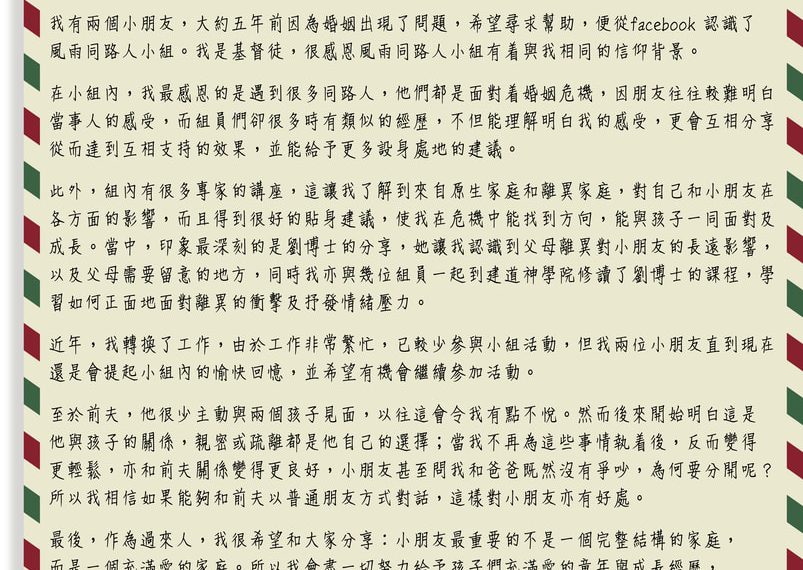 我有兩個小朋友，大約五年前因為婚姻出現了問題，希望尋求幫助，便從facebook 認識了
風雨同路人小組。我是基督徒，很感恩風雨同路人小組有着與我相同的信仰背景。
在小組內，我最感恩的是遇到很多同路人，他們都是面對着婚姻危機，因朋友往往較難明白
當事人的感受，而組員們卻很多時有類似的經歷，不但能理解明白我的感受，更會互相分享
從而達到互相支持的效果，並能給予更多設身處地的建議。
此外，組內有很多專家的講座，這讓我了解到來自原生家庭和離異家庭，對自己和小朋友在
各方面的影響，而且得到很好的貼身建議，使我在危機中能找到方向，能與孩子一同面對及
成長。當中，印象最深刻的是劉博士的分享，她讓我認識到父母離異對小朋友的長遠影響，
以及父母需要留意的地方，同時我亦與幾位組員一起到建道神學院修讀了劉博士的課程，學
習如何正面地面對離異的衝擊及抒發情緒壓力。
近年，我轉換了工作，由於工作非常繁忙，已較少參與小組活動，但我兩位小朋友直到現在
還是會提起小組內的愉快回憶，並希望有機會繼續參加活動。
至於前夫，他很少主動與兩個孩子見面，以往這會令我有點不悅。然而後來開始明白這是
他與孩子的關係，親密或疏離都是他自己的選擇；當我不再為這些事情執着後，反而變得
更輕鬆，亦和前夫關係變得更良好，小朋友甚至問我和爸爸既然沒有爭吵，為何要分開呢？
所以我相信如果能夠和前夫以普通朋友方式對話，這樣對小朋友亦有好處。
最後，作為過來人，我很希望和大家分享：小朋友最重要的不是一個完整結構的家庭，
而是一個充滿愛的家庭。所以我會盡一切努力給予孩子們充滿愛的童年與成長經歷，